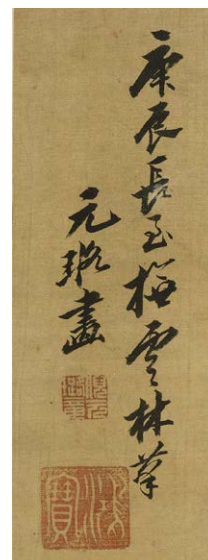 庚辰長至橅雲林筆
元璐畫